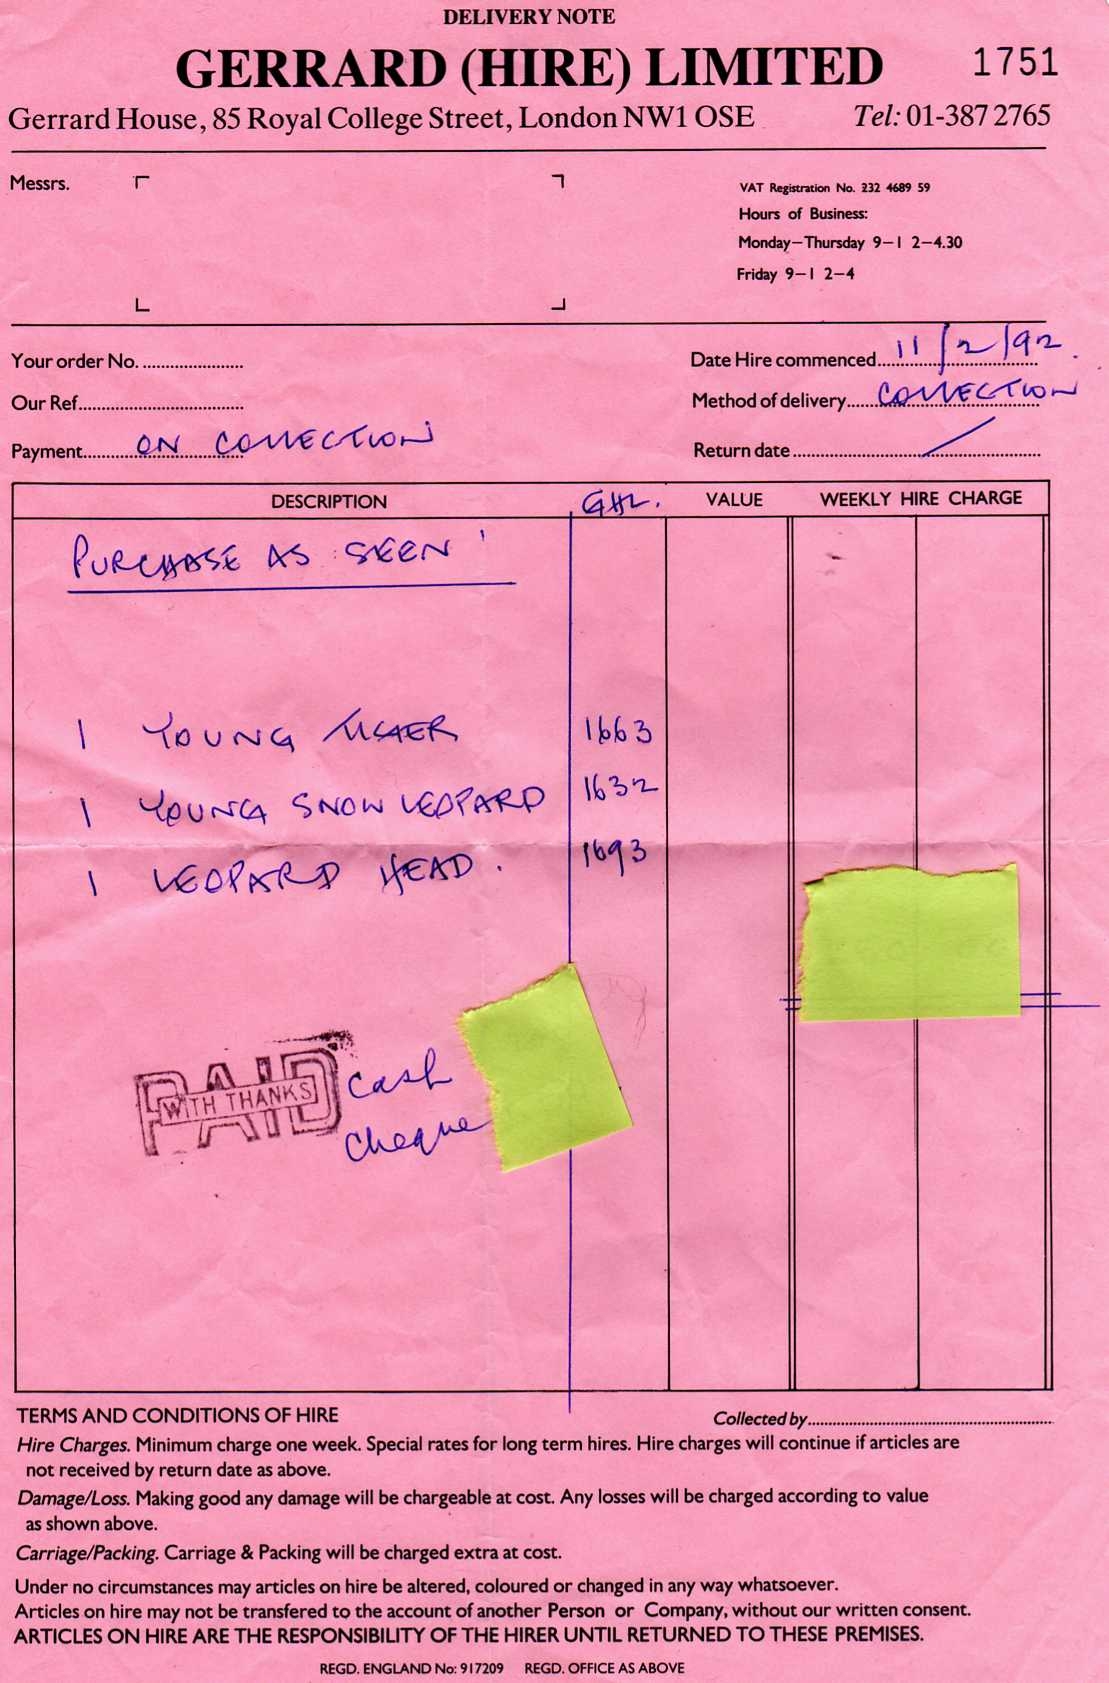 DELIVERY NOTE
GERRARD (HIRE) LIMITED 1751
Gerrard House, 85 Royal College Street, London NW1 OSE Tel: 01-387 2765
Messrs.
VAT Registration No. 232 4689 59
Hours of Business:
Monday–Thursday 9–1 2–4.30
Friday 9–1 2–4
Your order No. Date Hire commenced 11/2/92.
Our Ref. Method of delivery COLLECTION
Payment ON COLLECTION Return date /
DESCRIPTION GHL. VALUE WEEKLY HIRE CHARGE
PURCHASE AS SEEN '
1 YOUNG TIGER 1663
1 YOUNG SNOW LEOPARD 1632
1 LEOPARD HEAD. 1693
PAID WITH THANKS
cash
cheque
TERMS AND CONDITIONS OF HIRE Collected by
Hire Charges. Minimum charge one week. Special rates for long term hires. Hire charges will continue if articles are
not received by return date as above.
Damage/Loss. Making good any damage will be chargeable at cost. Any losses will be charged according to value
as shown above.
Carriage/Packing. Carriage & Packing will be charged extra at cost.
Under no circumstances may articles on hire be altered, coloured or changed in any way whatsoever.
Articles on hire may not be transfered to the account of another Person or Company, without our written consent.
ARTICLES ON HIRE ARE THE RESPONSIBILITY OF THE HIRER UNTIL RETURNED TO THESE PREMISES.
REGD. ENGLAND No: 917209 REGD. OFFICE AS ABOVE